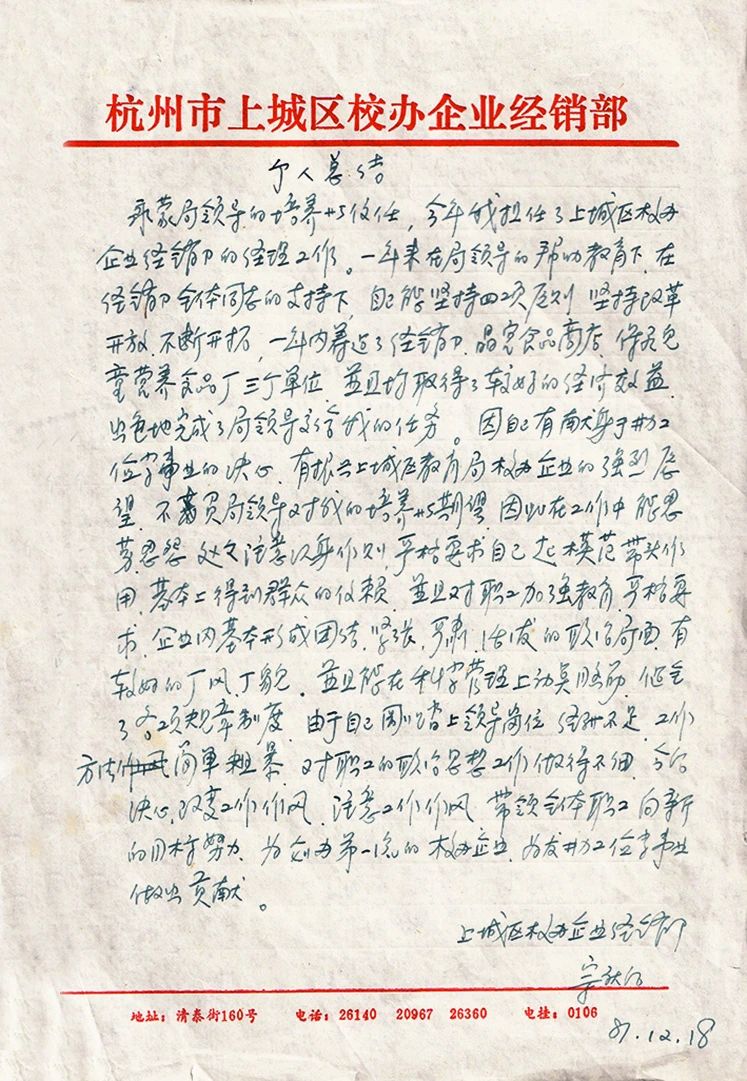 杭州市上城区校办企业经销部
个人总结
承蒙局领导的培养与信任，今年我担任了上城区校办
企业经销部的经理工作。一年来在局领导的帮助教育下，在
经销部全体同志的支持下，自己能坚持四项原则，坚持改革
开放，不断开拓，一年内筹建了经销部、晶宝食品商店、保灵儿
童营养食品厂三个单位，并且均取得了较好的经济效益，
出色地完成了局领导交给我的任务。因自己有献身于校办
企业事业的决心，有振兴上城区教育局校办企业的强烈愿
望，不辜负局领导对我的培养与期望，因此在工作中能思
劳忍怨，处处注意以身作则，严格要求自己，起模范带头作
用，基本上得到群众的信赖，并且对职工加强教育，严格要
求，企业内基本形成团结、紧张、严肃、活泼的政治局面，有
较好的厂风厂貌，并且能在科学管理上动真脑筋，健全
了各项规章制度，由于自己刚踏上领导岗位，经验不足，工作
方法简单粗暴，对职工的政治思想工作做得不细，今后
决心改变工作作风，注意工作作风，带领全体职工向新
的目标努力，为创办第一流的校办企业，为校办企业事业
做出贡献。
上城区校办企业经销部
宗
87.12.18
地址：清泰街160号 电话：26140 20967 26360 电挂：0106